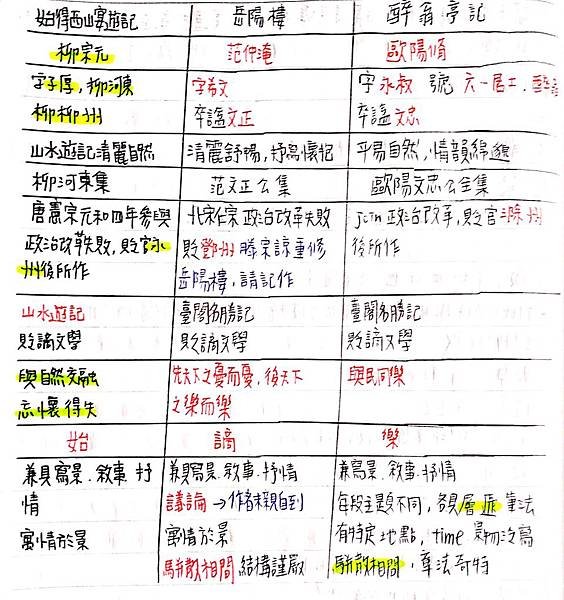 始得西山宴遊記 岳陽樓 醉翁亭記
柳宗元 范仲淹 歐陽脩
字子厚,柳河東 字希文 字永叔 號六一居士.醉
柳柳州 卒諡文正 卒諡文忠
山水遊記清麗自然 清麗舒暢,抒寫懷抱 平易自然,情韻綿邈
柳河東集 范文正公集 歐陽文忠公全集
唐憲宗元和四年參與 北宋仁宗政治改革失敗 join政治改革,貶官滁州
政治改革失敗,貶官永 貶鄧州 滕宗諒重修 後所作
州後所作 岳陽樓,請記作
山水遊記 臺閣名勝記 臺閣名勝記
貶謫文學 貶謫文學 貶謫文學
與自然交融 先天下之憂而憂,後天下 與民同樂
忘懷得失 之樂而樂
始 謫 樂
兼具寫景.敘事.抒 兼具寫景.敘事.抒情 兼寫景.敘事.抒情
情 議論→作者未親自到 每段主題不同,各見層遞筆法
寓情於景 寓情於景 有特定地點,time 景物泛寫
駢散相間 結構謹嚴 駢散相間,章法奇特